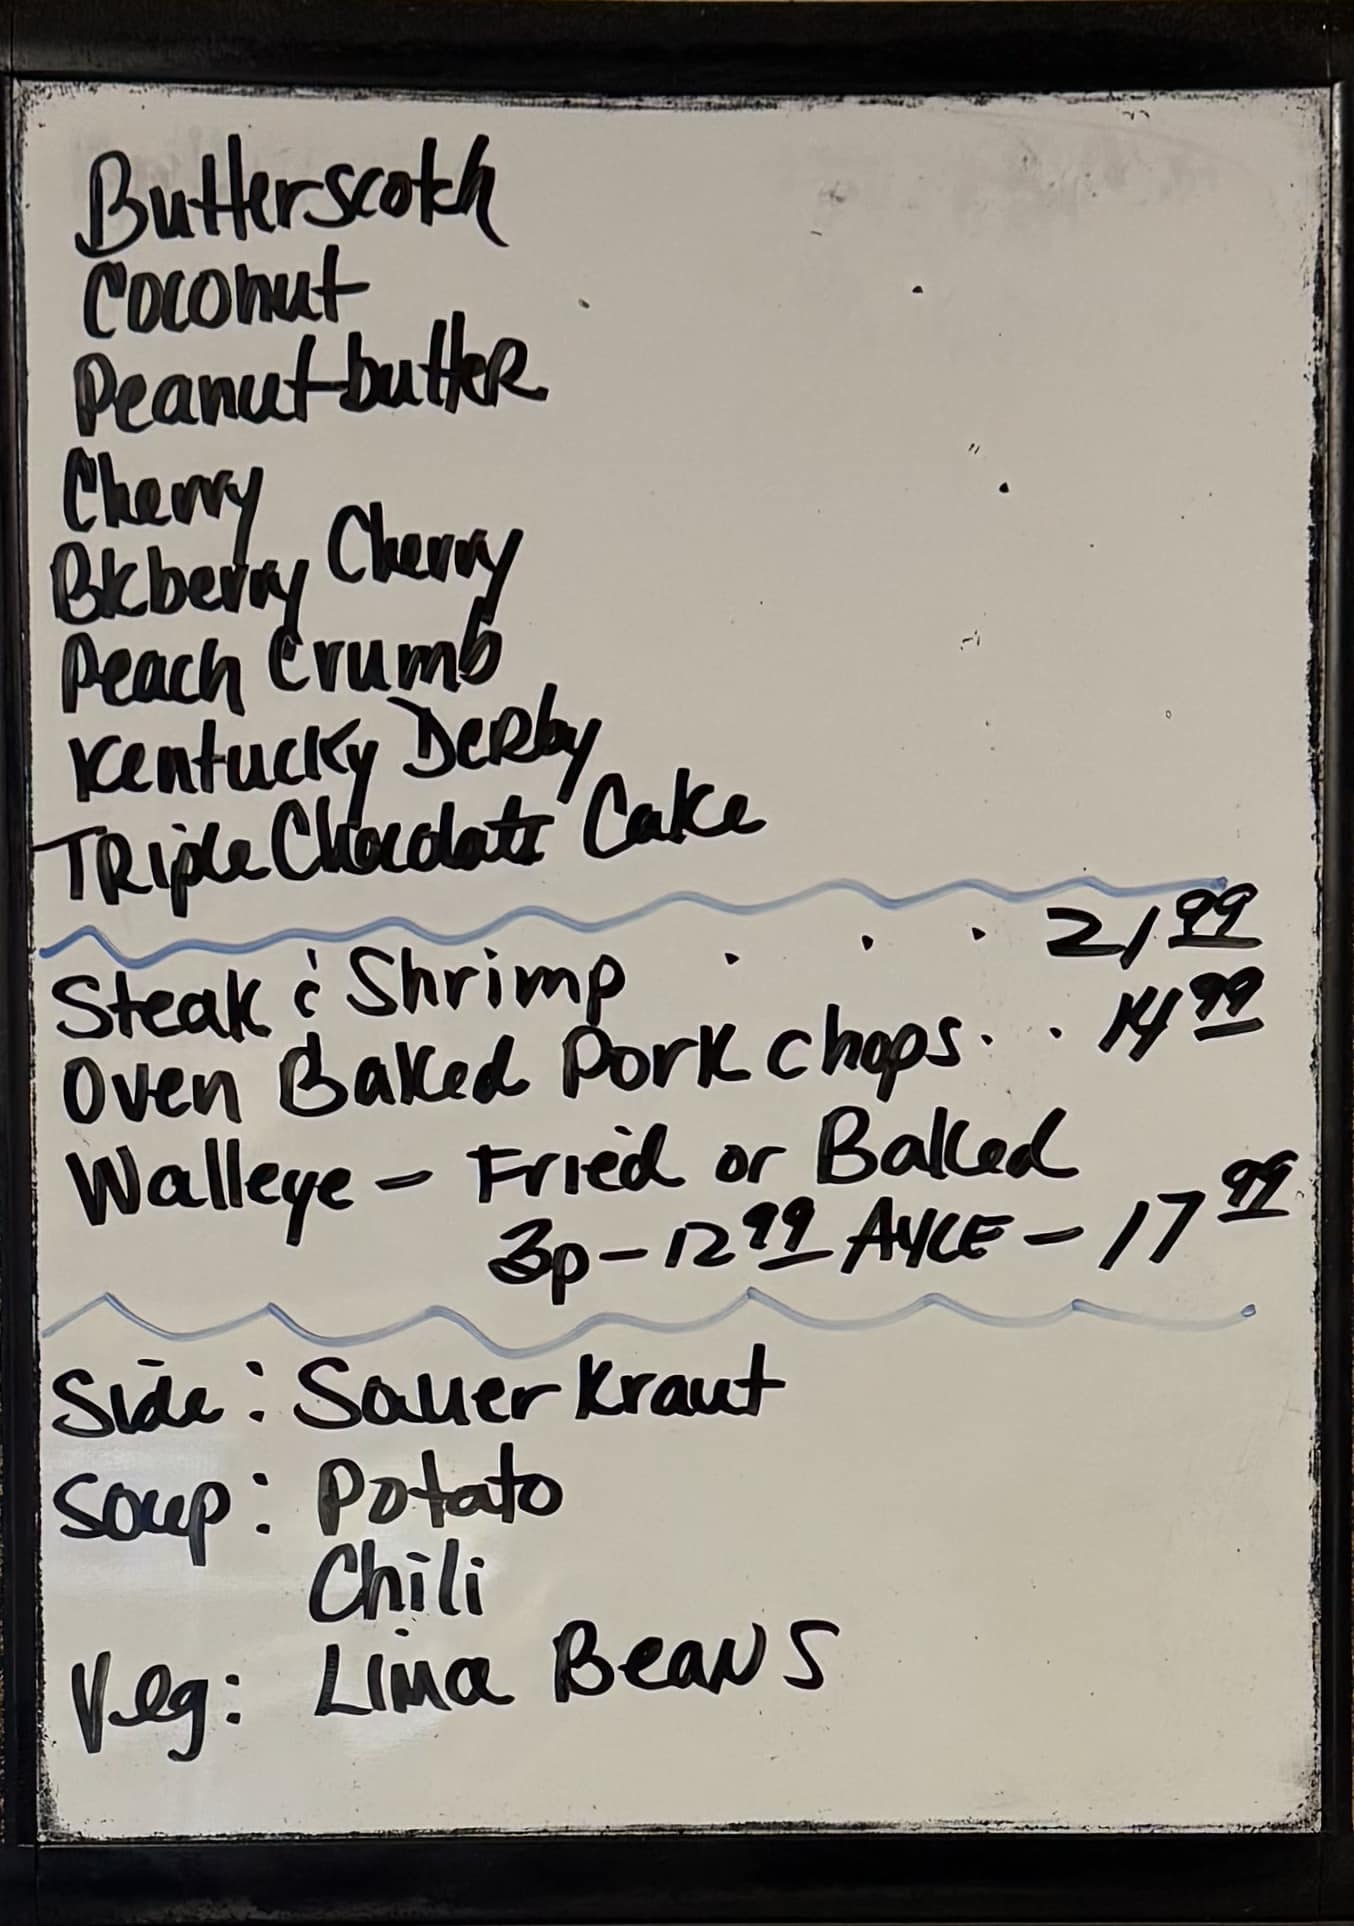 Butterscotch
Coconut
Peanutbutter
Cherry
Bkberry Cherry
Peach Crumb
Kentucky Derby
Triple Chocolate Cake
Steak & Shrimp . . . 21.99
Oven Baked Pork chops. . . 14 99
Walleye - Fried or Baked
3p - 12 99 AYCE - 17 99
Side: Sauerkraut
Soup: Potato
Chili
Veg: Lima Beans